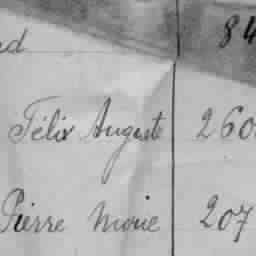 rd 84
Félix Auguste 260
Pierre Marie 207